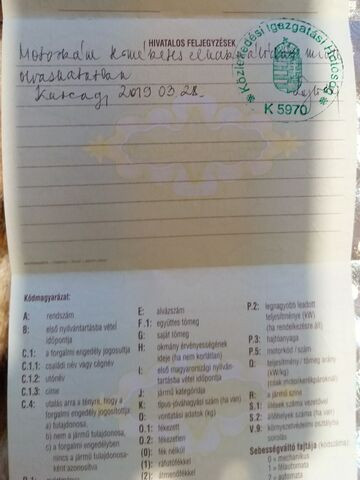 HIVATALOS FELJEGYZÉSEK
Közlekedési Igazgatási Hatóság
K 5970
olvashatatlan
Karcag, 2019 03. 28.
Kódmagyarázat:
A: rendszám
B: első nyilvántartásba vétel
időpontja
C.1: a forgalmi engedély jogosultja
C.1.1: családi név vagy cégnév
C.1.2: utónév
C.1.3: címe
C.4: utalás arra a tényre, hogy a
forgalmi engedély jogosítottja
a) tulajdonosa,
b) nem a jármű tulajdonosa,
c) a forgalmi engedélyben
nincs a jármű tulajdonosa-
ként azonosítva
E: alvázszám
F.1: együttes tömeg
G: saját tömeg
H: okmány érvényességének
ideje (ha nem korlátlan)
I: első magyarországi nyilván-
tartásba vétel időpontja
J: jármű kategóriája
K: típus-jóváhagyási szám (ha van)
O: vontatási adatok (kg)
O.1: fékezett
O.2: fékezetlen
(0): fék nélkül
(1): ráfutófékkel
(2): átmenőfékkel
P.2: legnagyobb leadott
teljesítménye (kW)
(ha rendelkezésre áll)
P.3: hajtóanyaga
P.5: motorkód / szám
Q: teljesítmény / tömeg arány
(kW/kg)
(csak motorkerékpároknál)
R: a jármű színe
S.1: ülések száma vezetővel
S.2: állóhelyek száma (ha van)
V.9: környezetvédelmi osztályba
sorolás
Sebességváltó fajtája (kódszáma):
0 = mechanikus
1 = félautomata
2 = automata